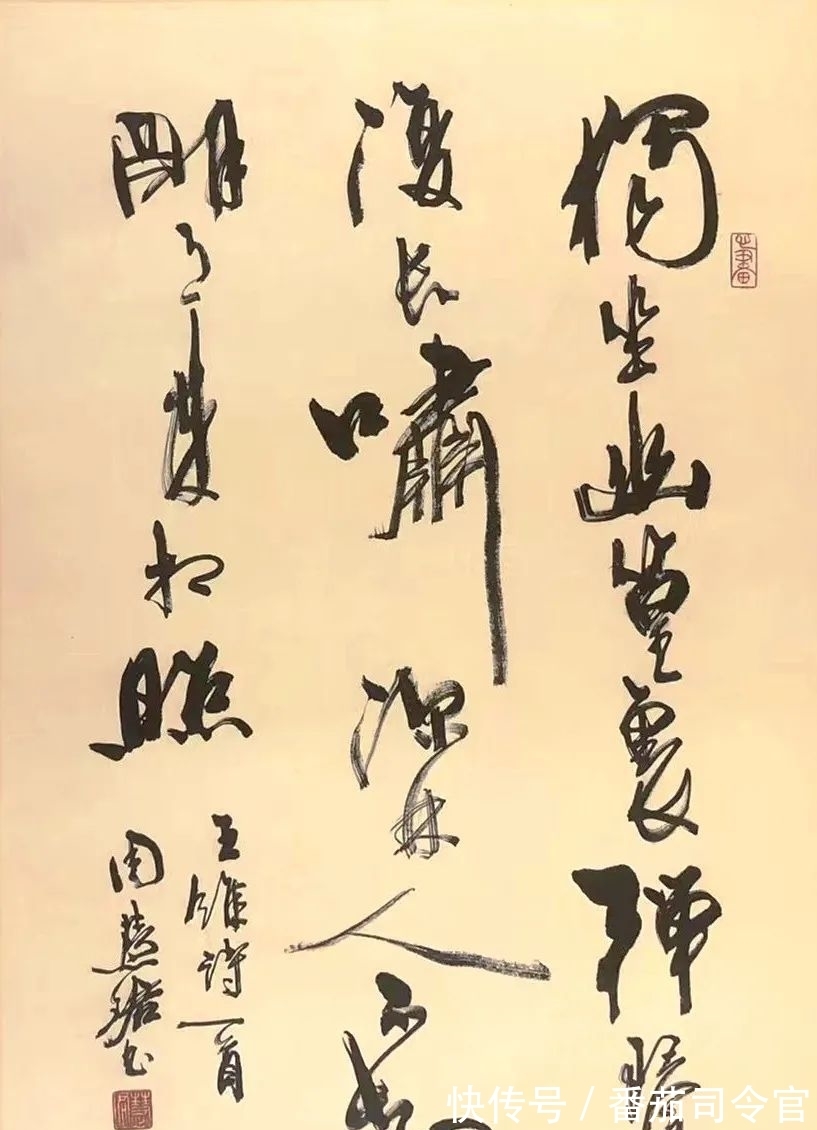 獨坐幽篁裏彈琴
復長嘯深林人不知
明月來相照
王維詩一首
周慧珺书
快传号 / 番茄司令官